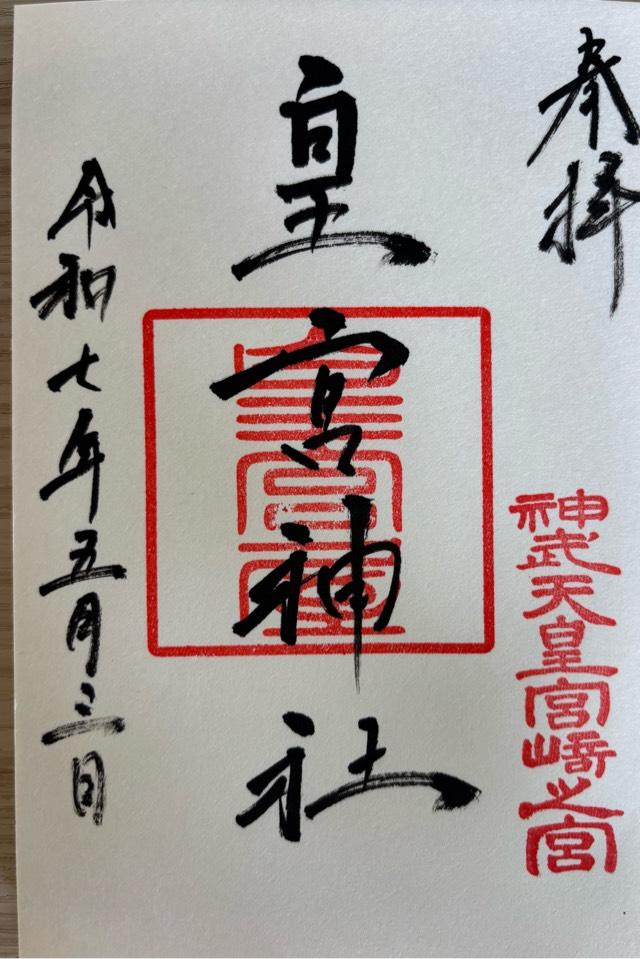 奉拝
神武天皇宮崎之宮
皇宮神社
皇宮璽
令和七年五月三日